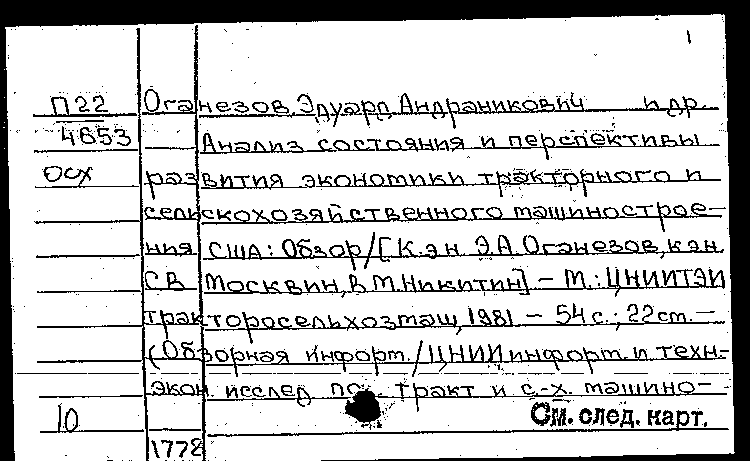 1
П22 Оганезов, Эдуард Андраникович и др.
4653 Анализ состояния и перспективы
осх развития экономики тракторного и
сельскохозяйственного машинострое-
ния США: Обзор/[К.эн. Э.А. Оганезов, кэн.
С.В. Москвин, В.М. Никитин] – М.: ЦНИИТЭИ
тракторосельхозмаш, 1981 – 54 с.; 22 см. –
(Обзорная информ. / ЦНИИ информ. и техн-
экон. исслед по тракт и с.-х. машино-
10 См. след. карт.
1778